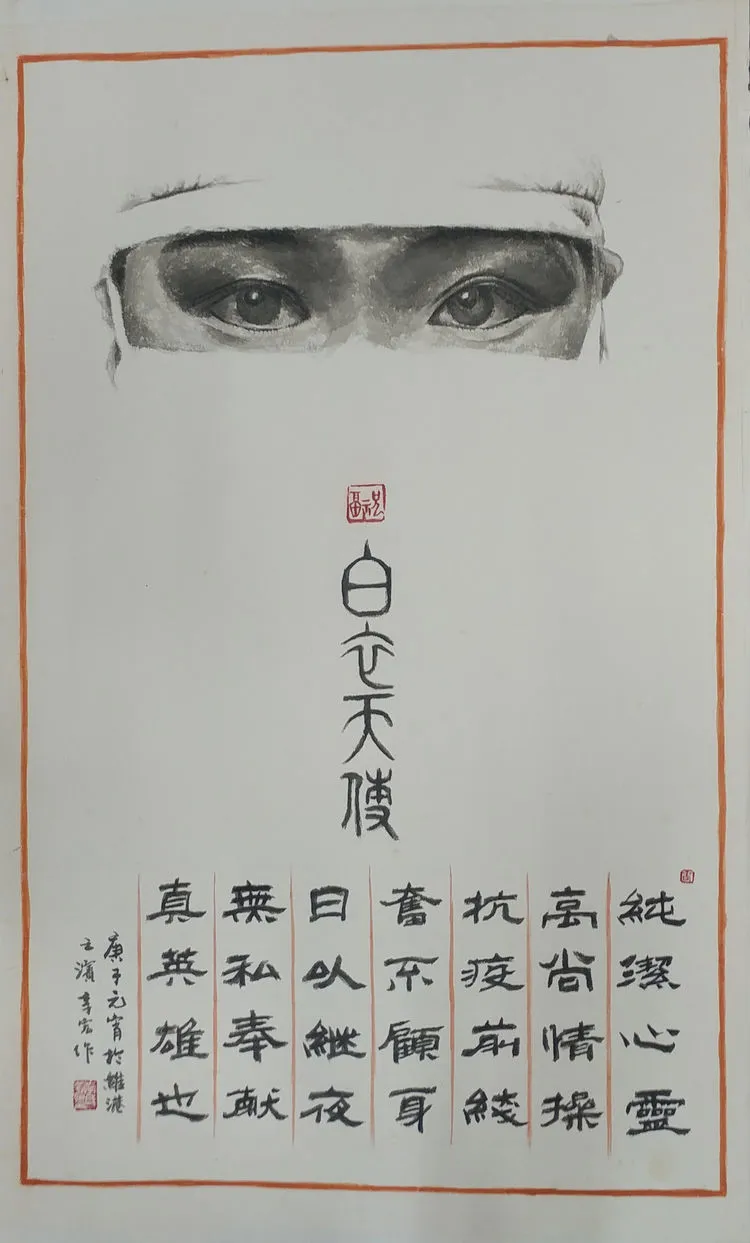 白衣天使
純潔心靈
高尚情操
抗疫前綫
奮不顧身
日以繼夜
無私奉献
真英雄也
庚子元宵於維港